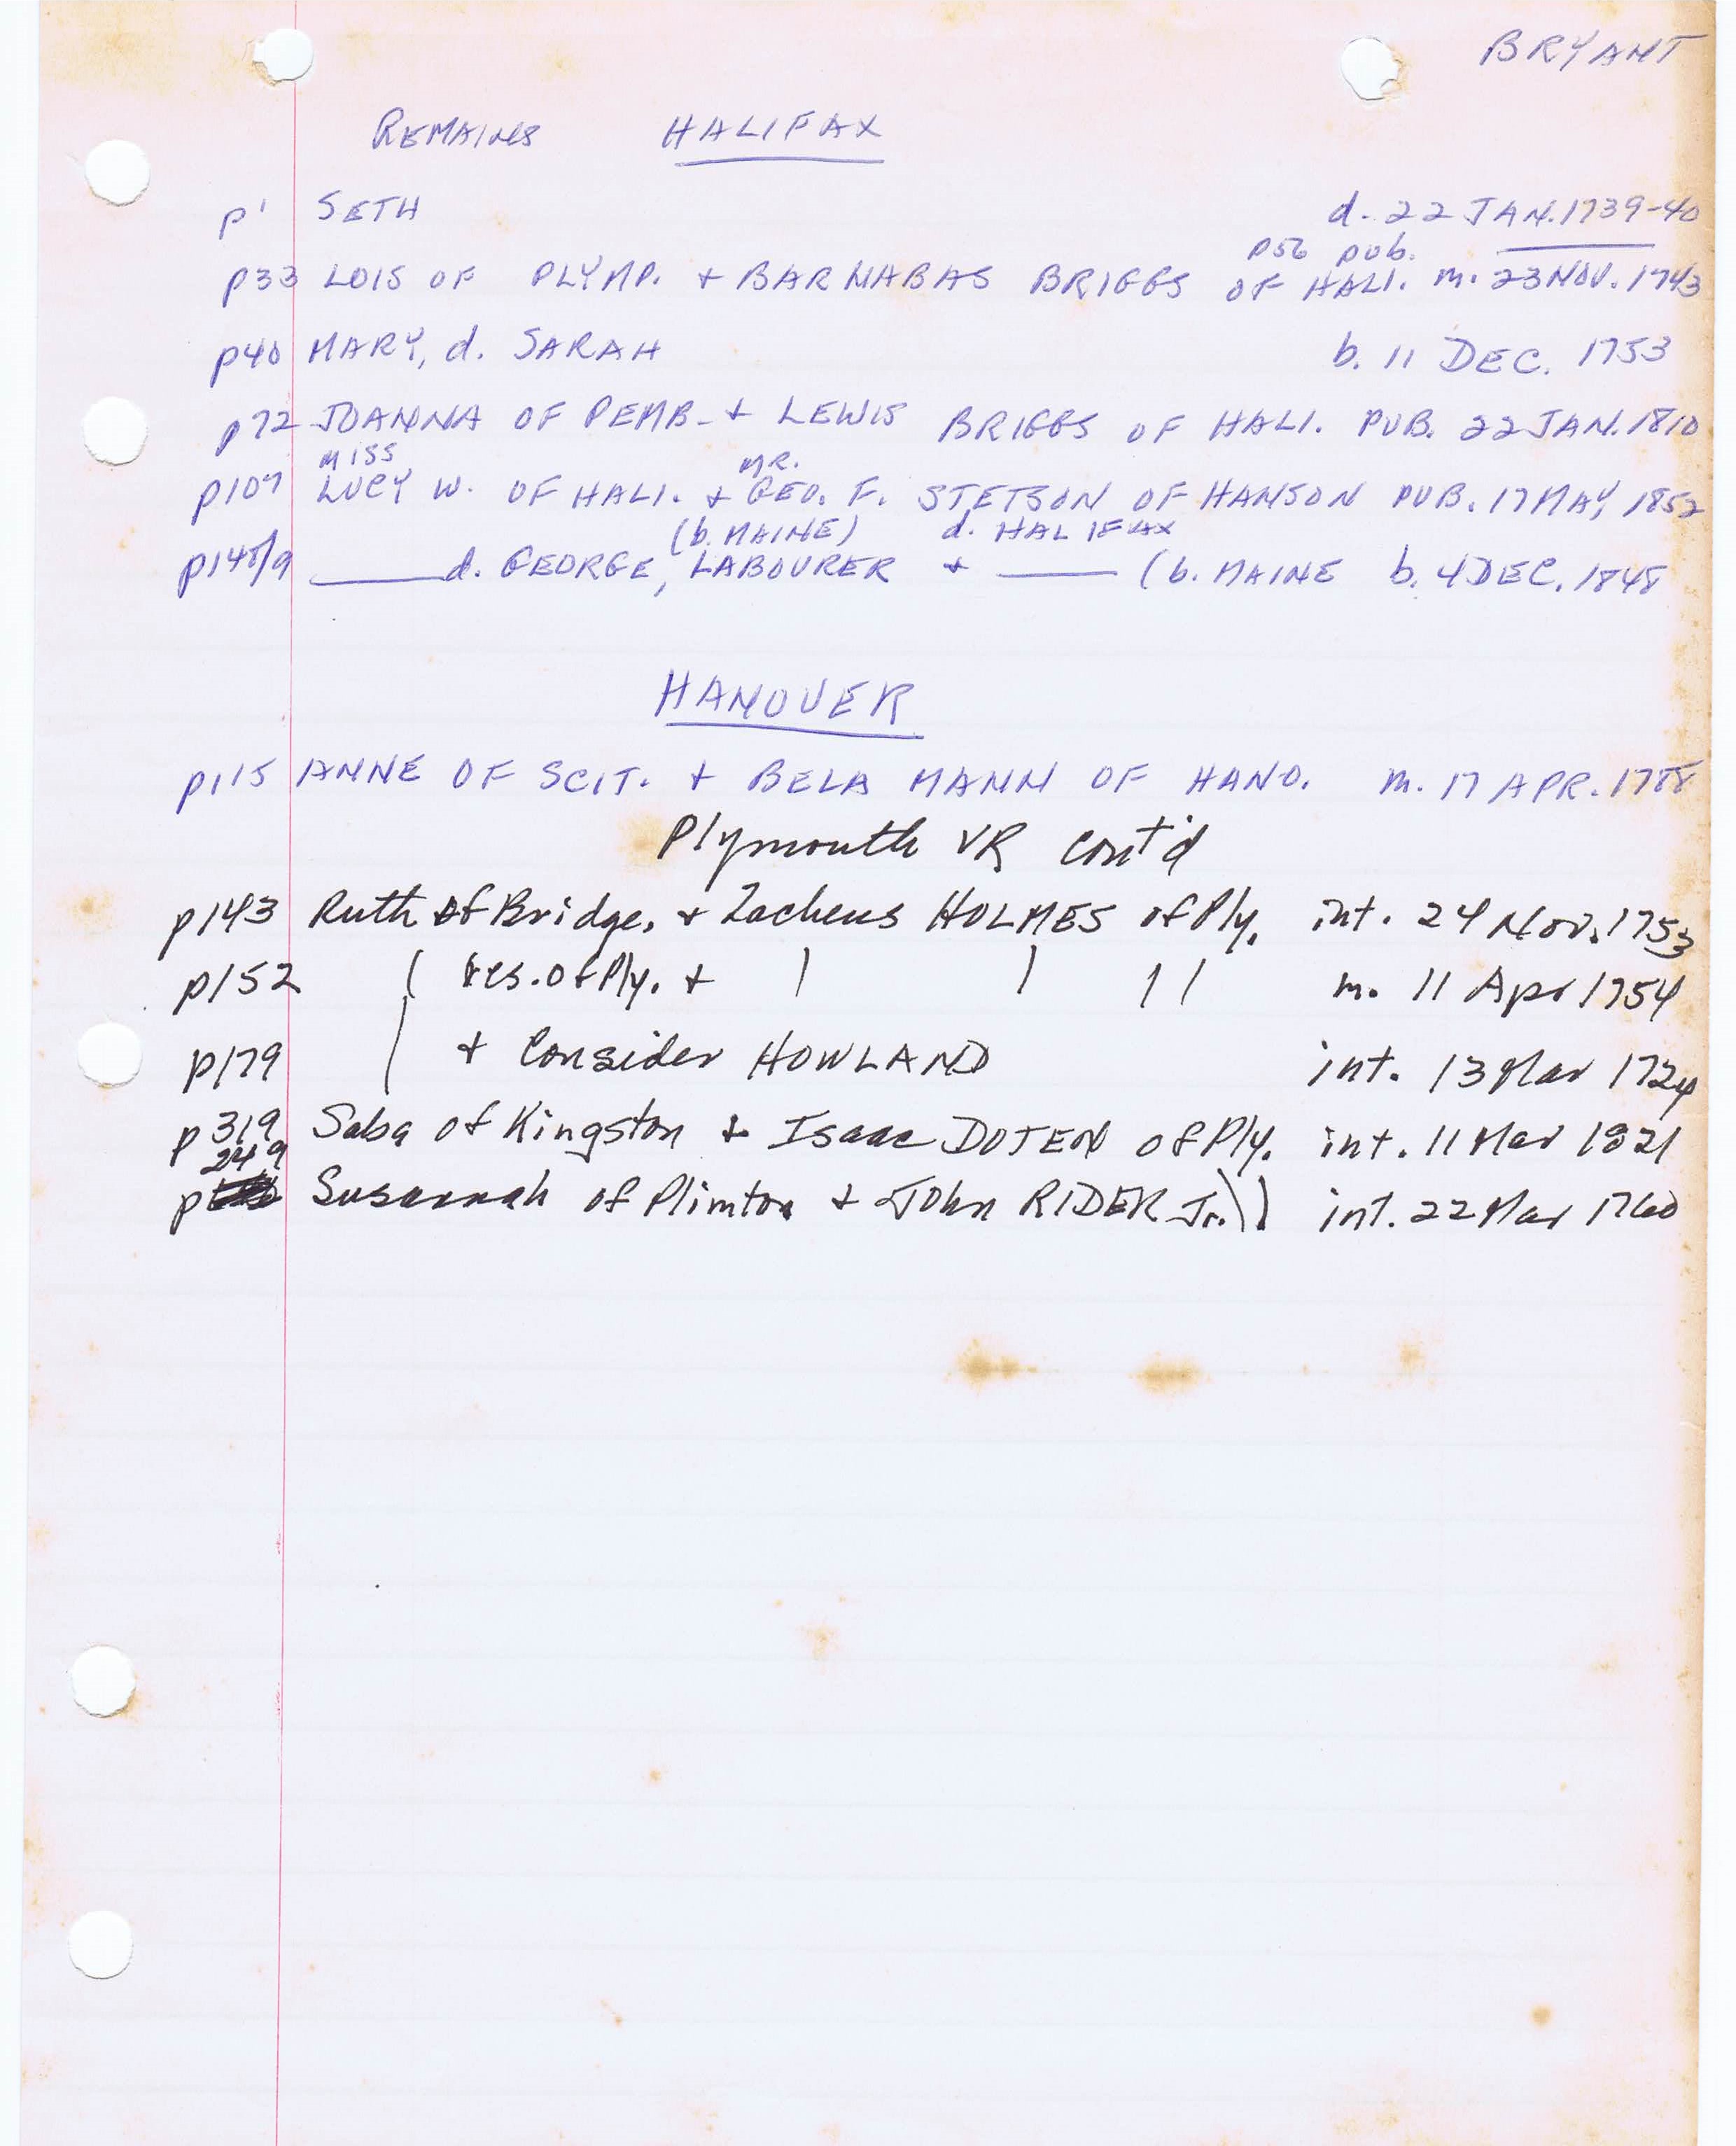 BRYANT
REMAINS HALIFAX
p1 SETH d. 22 JAN. 1739-40
p56 pub.
p33 LOIS OF PLYMP. + BARNABAS BRIGGS OF HALI. m. 23 NOV. 1743
p40 MARY, d. SARAH b. 11 DEC. 1753
p72 JOANNA OF PEMB. + LEWIS BRIGGS OF HALI. PUB. 22 JAN. 1810
MISS MR.
p107 LUCY W. OF HALI. + GEO. F. STETSON OF HANSON PUB. 17 MAY, 1852
(b. MAINE) d. HALIFAX
p148/9 ____ d. GEORGE, LABOURER + ____ (b. MAINE b. 4 DEC. 1848
HANOVER
p115 ANNE OF SCIT. + BELA MANN OF HANO. m. 17 APR. 1788
Plymouth VR cont'd
p143 Ruth of Bridge. + Zacheus HOLMES of Ply. int. 24 Nov. 1753
p152 ( res. of Ply. + | | | | m. 11 Apr 1754
p179 | + Consider HOWLAND int. 13 Mar 1724
p319 Saba of Kingston + Isaac DOTEN of Ply. int. 11 Mar 1821
249
p Susannah of Plimton + John RIDER Jr. \ ) int. 22 Mar 1760